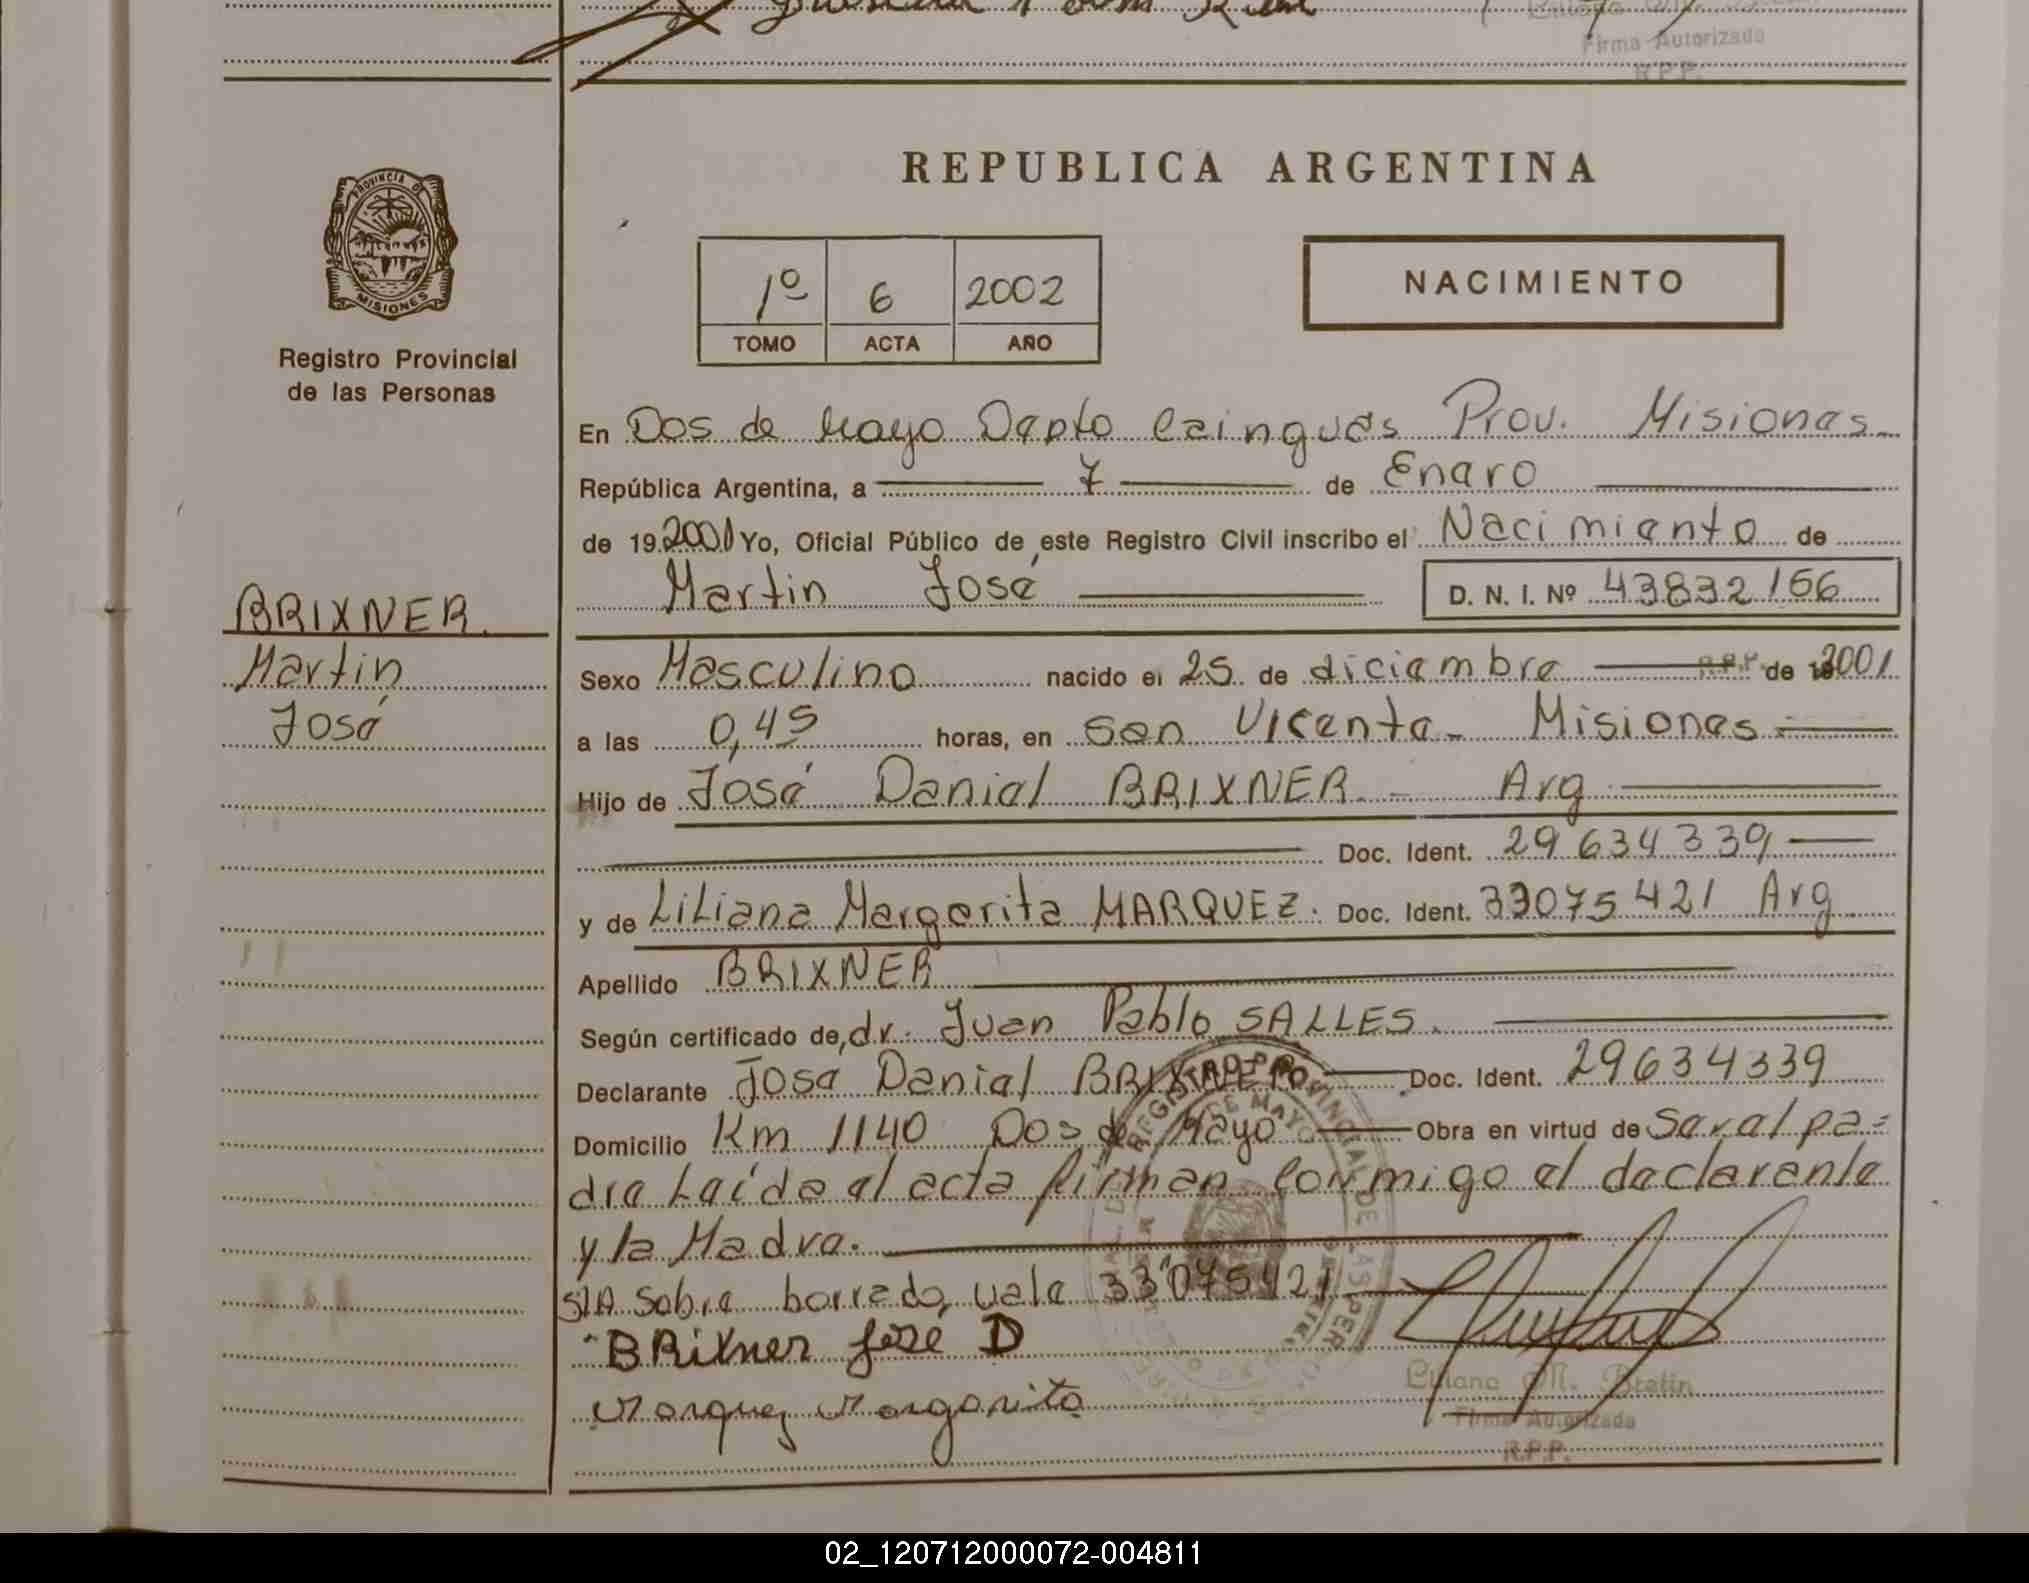 Firma Autorizada
R.P.P.
PROVINCIA DE
MISIONES
Registro Provincial
de las Personas
REPUBLICA ARGENTINA
1º 6 2002
TOMO ACTA AÑO
NACIMIENTO
En Dos de Mayo Depto Cainguás Prov. Misiones
República Argentina, a 7 de Enero
de 19 200 Yo, Oficial Público de este Registro Civil inscribo el Nacimiento de
Martin José D. N. I. Nº 43832166
BRIXNER
Martin
José
Sexo Masculino nacido el 25 de diciembre R.P.P. de 2001
a las 0,45 horas, en San Vicente - Misiones
Hijo de José Daniel BRIXNER - Arg
Doc. Ident. 29634339
y de Liliana Margarita MARQUEZ. Doc. Ident. 33075421 Arg
Apellido BRIXNER
Según certificado de, dr. Juan Pablo SALLES.
Declarante José Daniel BRIXNER Doc. Ident. 29634339
Domicilio Km 1140 Dos de Mayo Obra en virtud de Ser al pa=
dre Leída el acta firman Conmigo el declarante
y la Madre.
S/A Sobre borrado, vale 33075421
BRixner José D
Marquez Margarita
Liliana M.
Firma Autorizada
R.P.P.
02_120712000072-004811